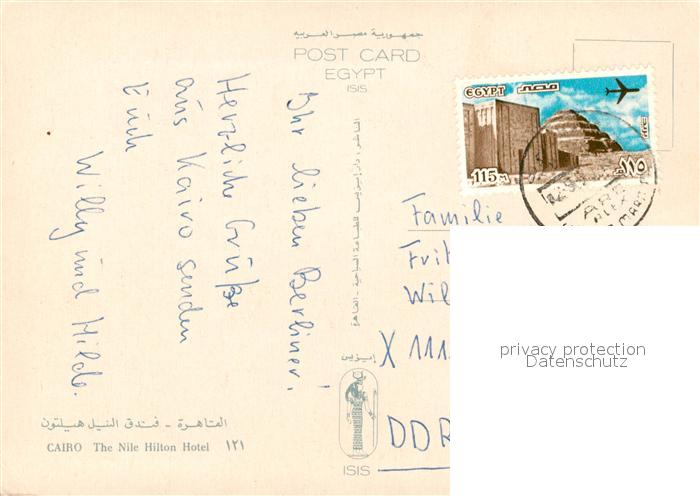 جمهورية مصر العربية
POST CARD
EGYPT
ISIS
EGYPT مصر
115 M ١١٥
Ihr lieben Berliner!
Herzliche Grüße
aus Kairo senden
Euch
Willy und Hilde.
Familie
Frit
Wil
X 111
DDR
privacy protection
Datenschutz
إيزيس
ISIS
القاهرة - فندق النيل هيلتون
CAIRO The Nile Hilton Hotel ١٢١